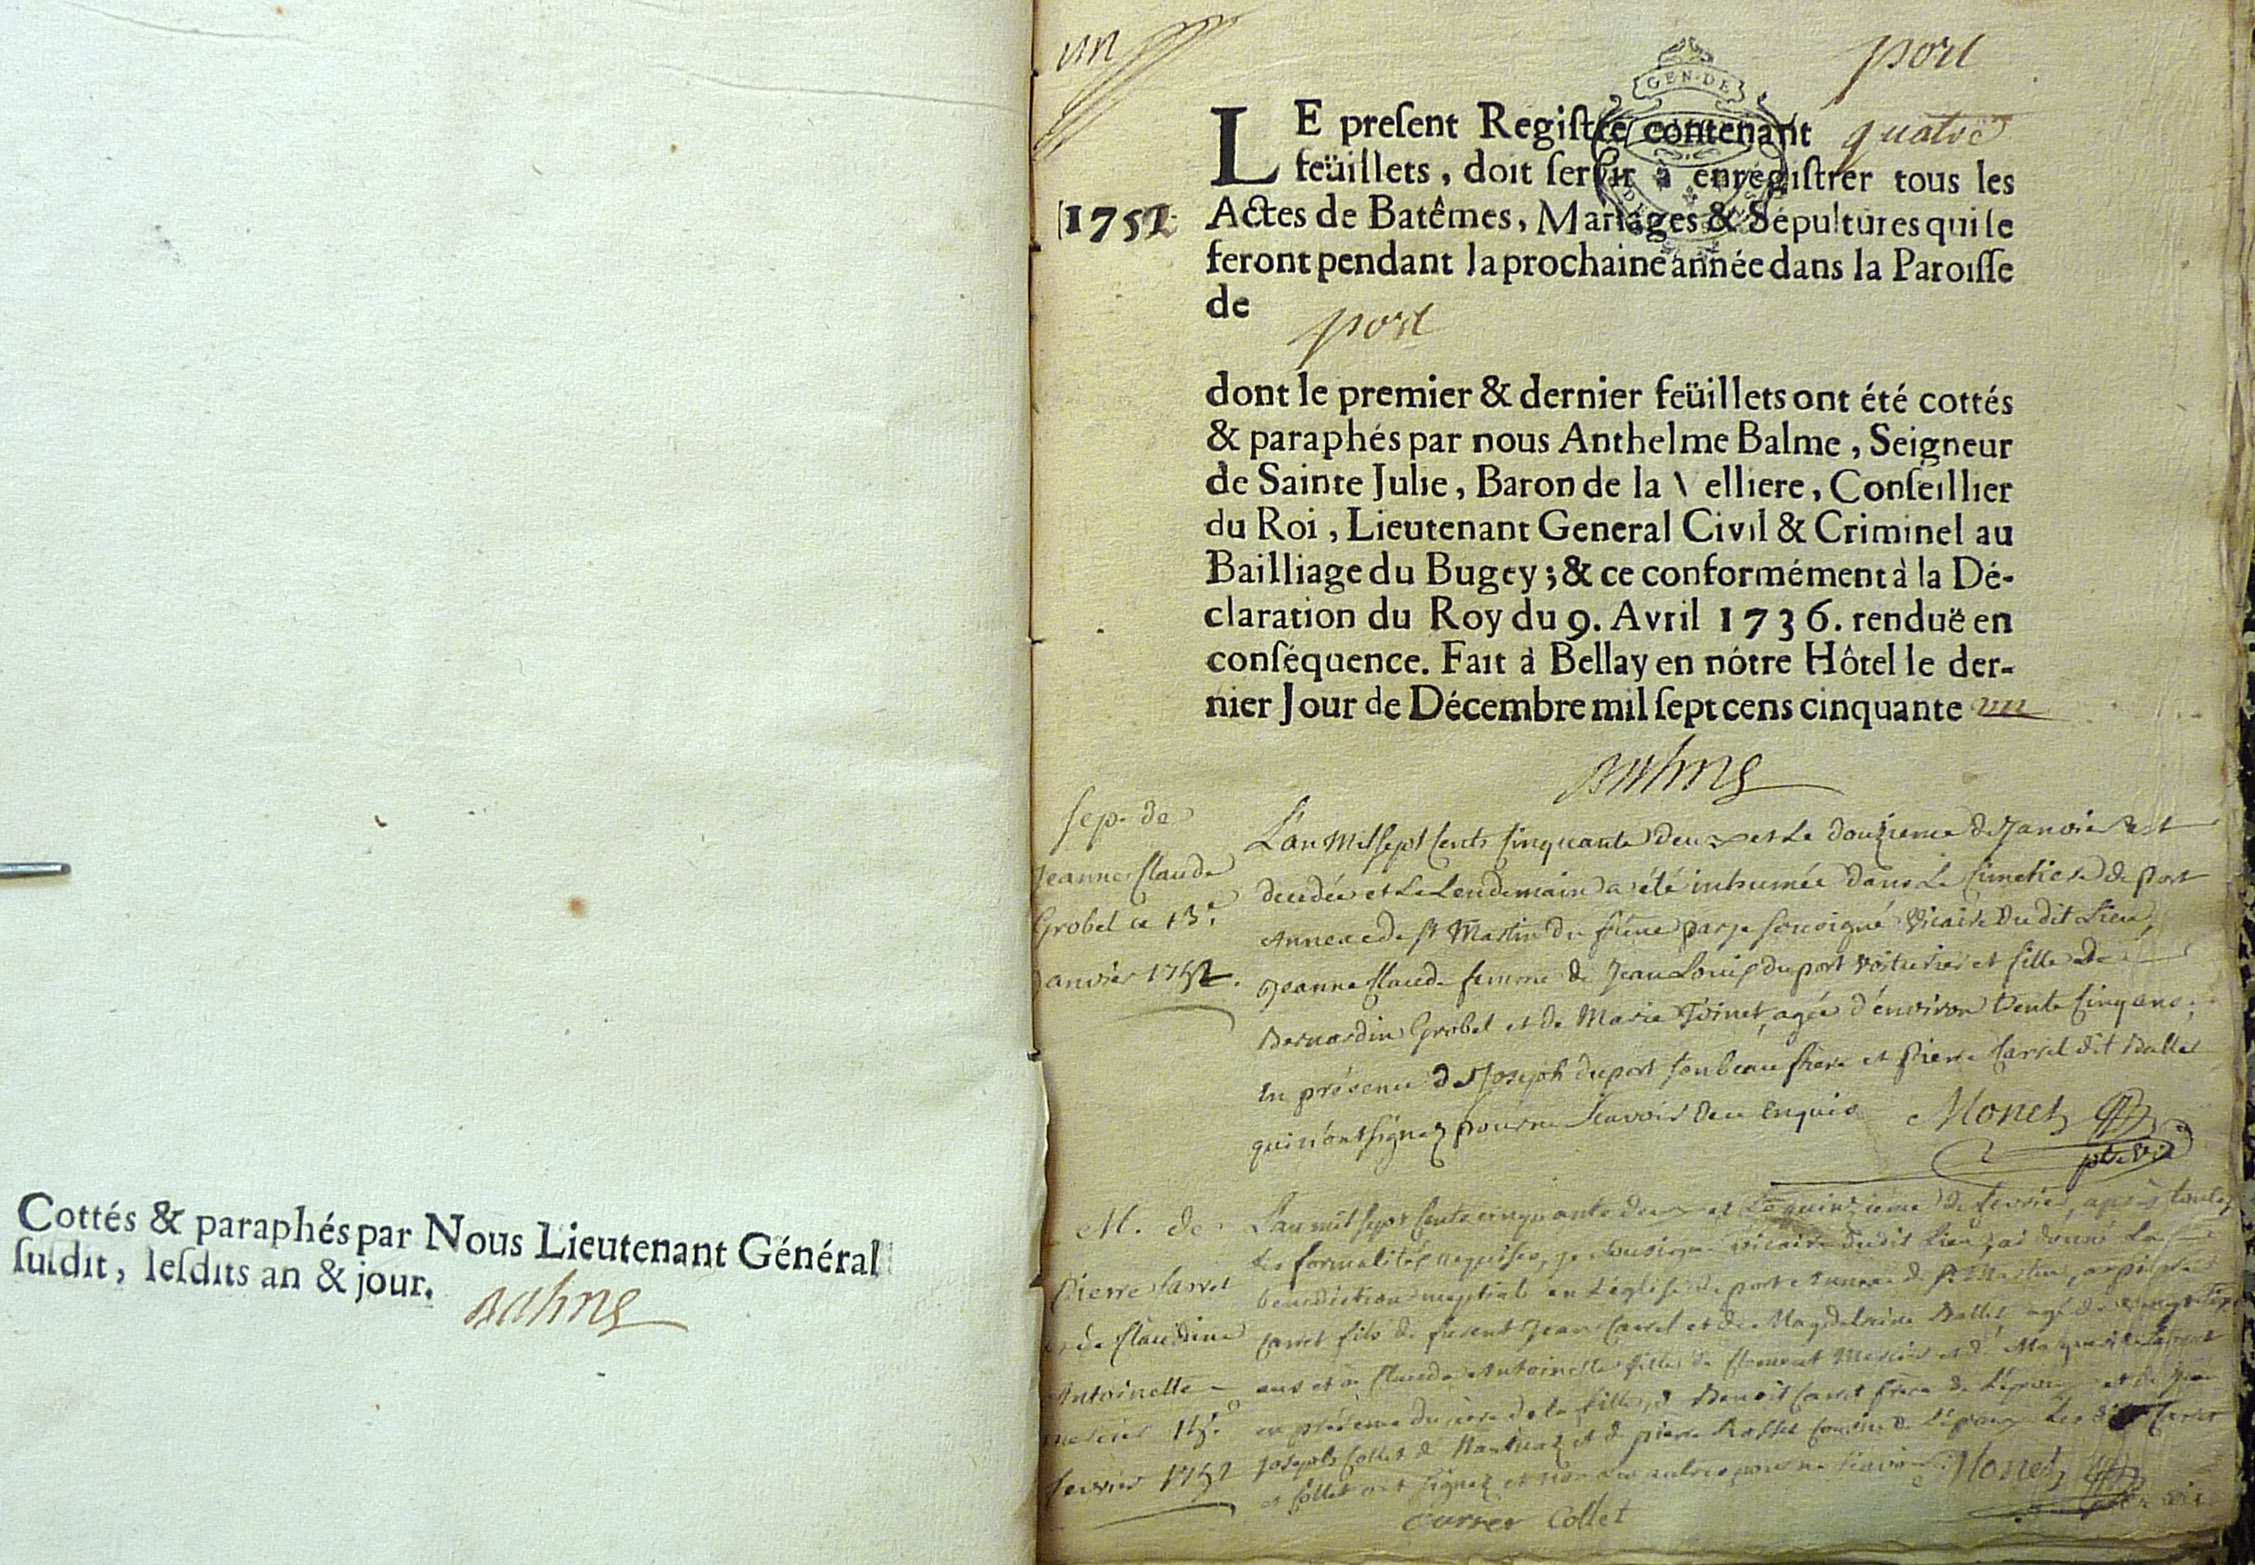 Cottés & paraphés par Nous Lieutenant Général
ſuſdit, leſdits an & jour.
un
port
GEN·DE
LE preſent Regiſtre contenant quatre
feüillets, doit ſervir à enrégiſtrer tous les
1752
Actes de Batêmes, Mariages & Sépultures qui ſe
feront pendant la prochaine année dans la Paroiſſe
de
port
dont le premier & dernier feüillets ont été cottés
& paraphés par nous Anthelme Balme, Seigneur
de Sainte Julie, Baron de la Velliere, Conſeillier
du Roi, Lieutenant General Civil & Criminel au
Bailliage du Bugey; & ce conformément à la Dé-
claration du Roy du 9. Avril 1736. renduë en
conſéquence. Fait à Bellay en nôtre Hôtel le der-
nier Jour de Décembre mil ſept cens cinquante un
Sep. de
Jeanne Claude
Grobel ce 13.e
Janvier 1752.
L'an Mil sept Cents Cinquante deux et Le douzieme de Janvier est
decedée et Le Lendemain a été inhumée dans Le Cimetiere de Port
Annexe de St Martin du frêne par je soussigné Vicaire du dit Lieu,
Jeanne Claude femme de Jean Louis duport voiturier et fille de
Bernardin Grobel et de Marie Toinet, agée d'environ trente Cinq ans,
En présence de Joseph duport son beau frere et Pierre Carrel dit Ballet
qui n'ont signez pour ne Scavoir de ce Enquis Monet
ptre vic
M. de
Pierre Carret
et de Claudine
Antoinette
mercier 15.e
fevrier 1752
L'an mil sept cents cinquante deux et Le quinzieme de fevrier, après toutes
Les formalités requises, je soussigné vicaire dudit Lieu, ai donné La
benediction nuptiale en L'église de port Annexe de St Martin, a pierre
Carret fils de furent Jean Carret et de Magdelaine Ballet, agé de vingt sept
ans et a Claude Antoinette fille de Clement Mercier et de Marguerite
en présence du père de la fille, de Benoit Carret frere de L'époux et de Jean
Joseph Collet de et de pierre Rosset Cousin de L'époux Les dits Carret
et Collet ont signez et non les autres pour ne scavoir Monet
Carret Collet